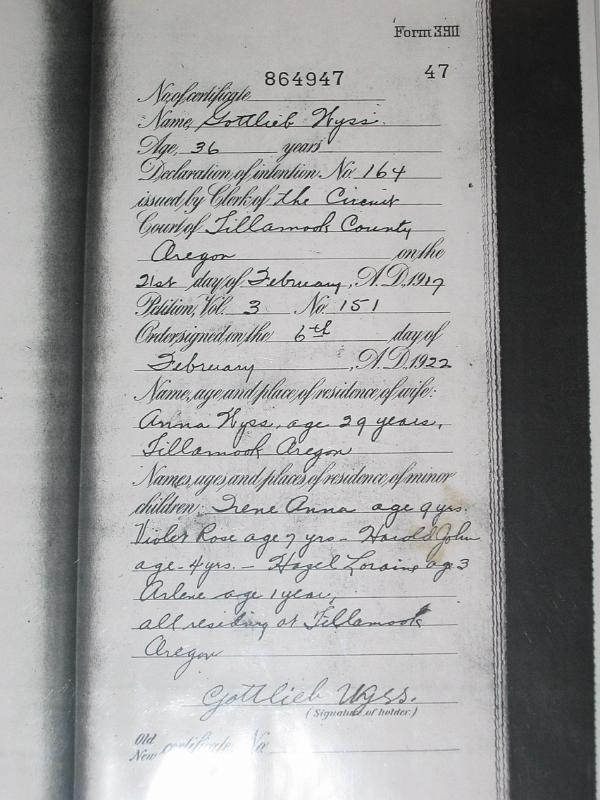 Form 3911
864947 47
No. of certificate
Name, Gottlieb Wyss.
Age, 36 years
Declaration of intention No 164
issued by Clerk of the Circuit
Court of Tillamook County
Oregon on the
21st day of February, A.D. 1917
Petition, Vol. 3 No 151
Order signed on the 6th day of
February, A.D. 1922
Name, age and place of residence of wife:
Anna Wyss, age 29 years,
Tillamook Oregon
Names, ages and places of residence of minor
children: Irene Anna age 9 yrs.
Violet Rose age 7 yrs - Harold John
age - 4 yrs. - Hazel Loraine age 3
Arlene age 1 year,
all residing at Tillamook
Oregon
Gottlieb Wyss.
(Signature of holder.)
Old
New certificate No